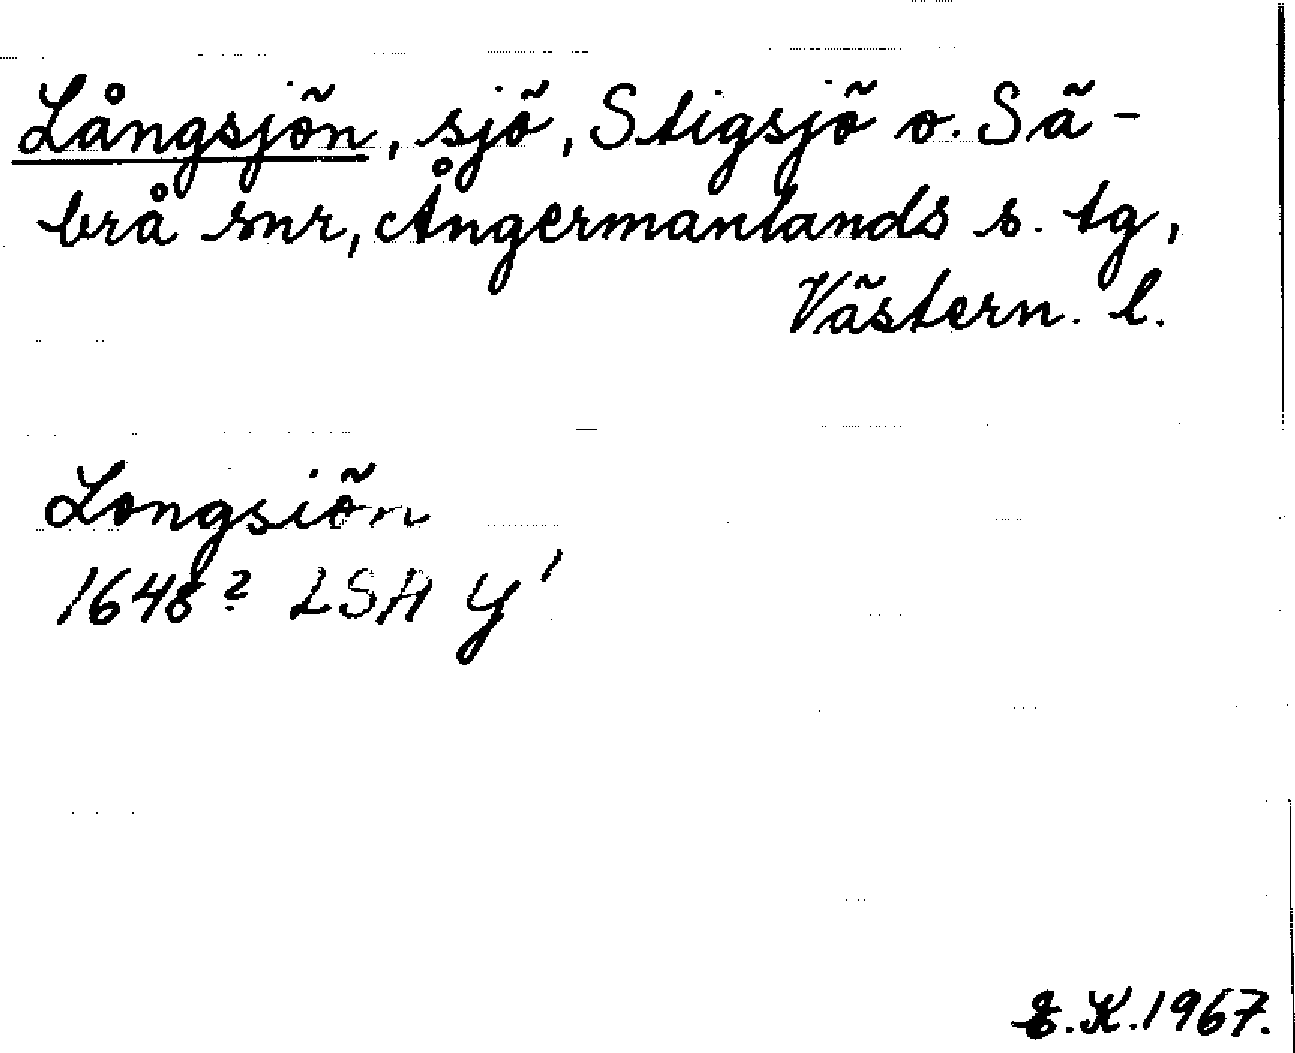 Långsjön, sjö, Stigsjö o. Sä-
brå snr, Ångermanlands s. tg,
Västern. l.
Longsiön
1648? LSA Y'
K. 1967.